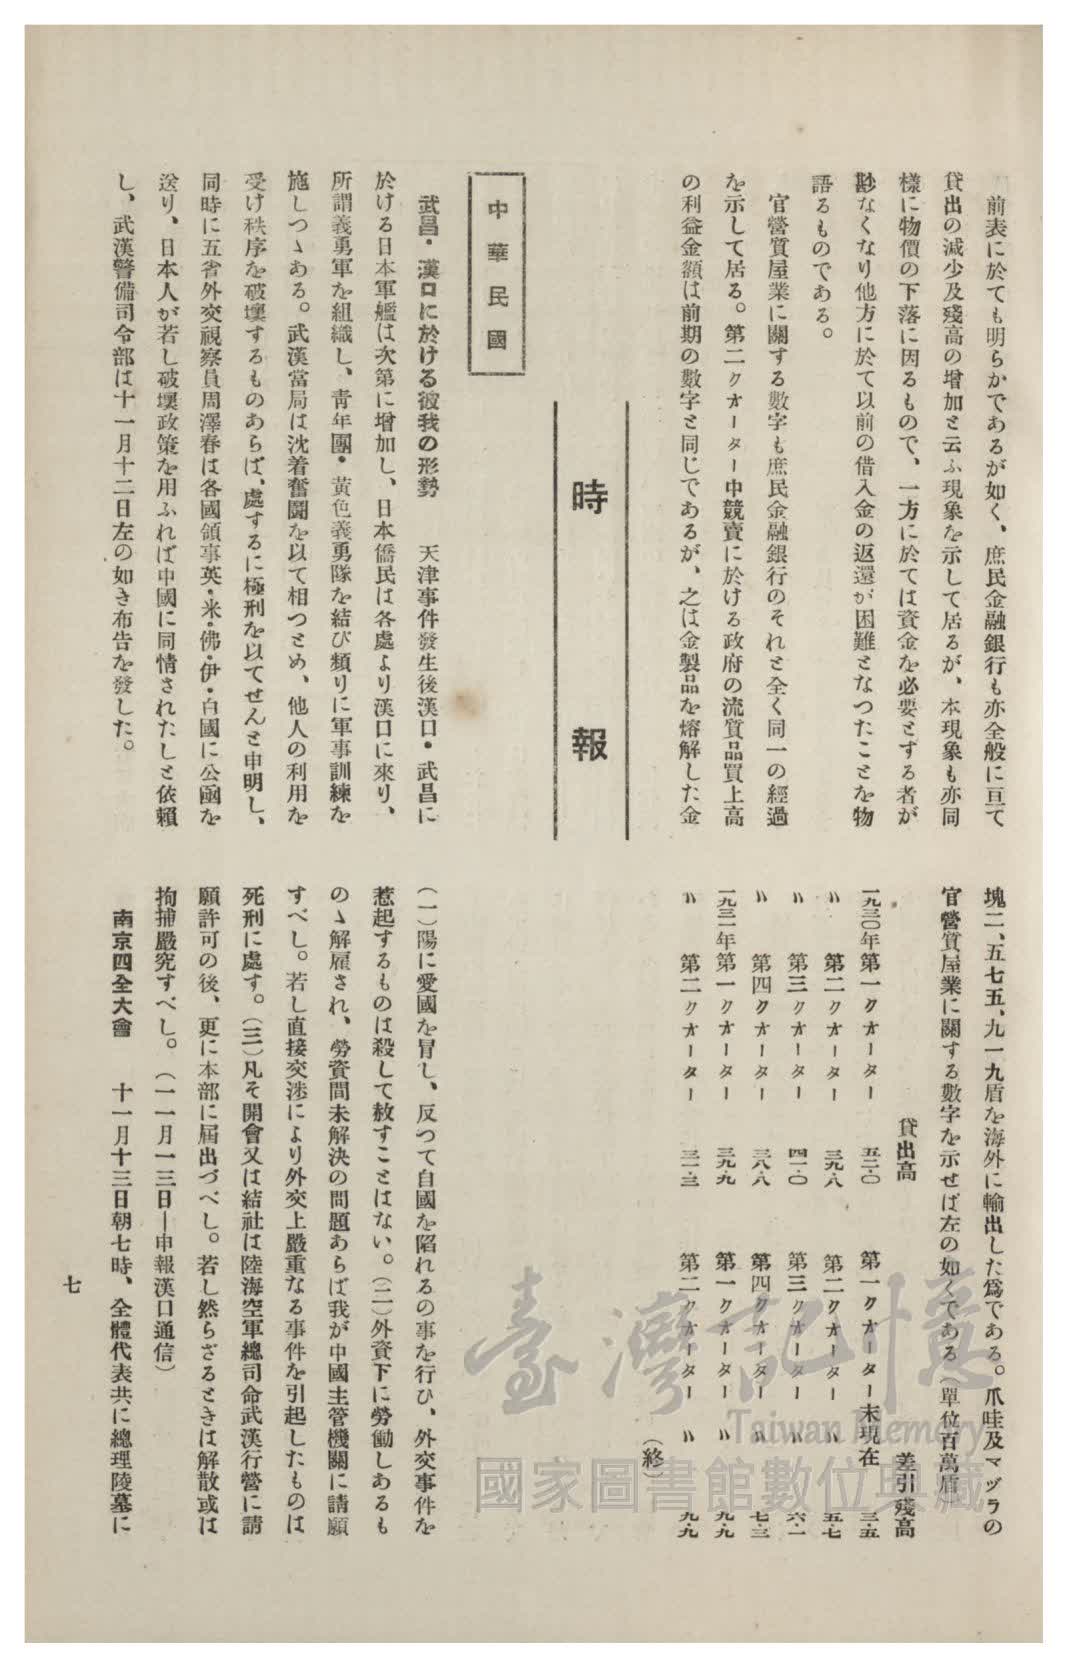 前表に於ても明らかであるが如く、庶民金融銀行も亦全般に亘て
貸出の減少及殘高の增加と云ふ現象を示して居るが、本現象も亦同
樣に物價の下落に因るもので、一方に於ては資金を必要とする者が
尠なくなり他方に於て以前の借入金の返還が困難となつたことを物
語るものである。
官營質屋業に關する數字も庶民金融銀行のそれと全く同一の經過
を示して居る。第二クオーター中競賣に於ける政府の流質品買上高
の利益金額は前期の數字と同じであるが、之は金製品を熔解した金
塊二、五七五、九一九盾を海外に輸出した爲である。爪哇及マヅラの
官營質屋業に關する數字を示せば左の如くである（單位百萬盾）
貸出高　差引殘高
一九三〇年第一クオーター　五二・〇　第一クオーター末現在　三・五
〃　第二クオーター　三九・八　第二クオーター　〃　五・七
〃　第三クオーター　四一・〇　第三クオーター　〃　六・一
〃　第四クオーター　三八・八　第四クオーター　〃　七・三
一九三一年第一クオーター　三九・九　第一クオーター　〃　九・九
〃　第二クオーター　三一・三　第二クオーター　〃　九・九
（終）
時報
中華民國
武昌・漢口に於ける彼我の形勢　天津事件發生後漢口・武昌に
於ける日本軍艦は次第に增加し、日本僑民は各處より漢口に來り、
所謂義勇軍を組織し、靑年團・黃色義勇隊を結び頻りに軍事訓練を
施しつゝある。武漢當局は沈着奮鬪を以て相つとめ、他人の利用を
受け秩序を破壞するものあらば、處するに極刑を以てせんと申明し、
同時に五省外交視察員周澤春は各國領事英・米・佛・伊・白國に公函を
送り、日本人が若し破壞政策を用ふれば中國に同情されたしと依賴
し、武漢警備司令部は十一月十二日左の如き布告を發した。
（一）陽に愛國を冒し、反つて自國を陷れるの事を行ひ、外交事件を
惹起するものは殺して赦すことはない。（二）外資下に勞働しあるも
のゝ解雇され、勞資間未解決の問題あらば我が中國主管機關に請願
すべし。若し直接交涉により外交上嚴重なる事件を引起したものは
死刑に處す。（三）凡そ開會又は結社は陸海空軍總司命武漢行營に請
願許可の後、更に本部に屆出づべし。若し然らざるときは解散或は
拘捕嚴究すべし。（一一月一三日―申報漢口通信）
南京四全大會　十一月十三日朝七時、全體代表共に總理陵墓に
七
臺灣記憶
Taiwan Memory
國家圖書館數位典藏